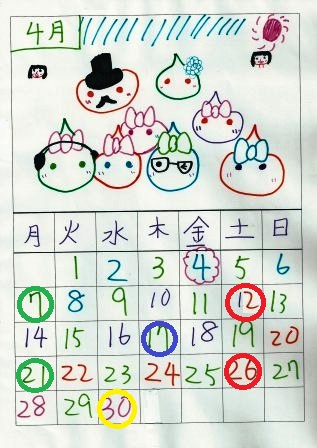 4月
月 火 水 木 金 土 日
1 2 3 4 5 6
7 8 9 10 11 12 13
14 15 16 17 18 19 20
21 22 23 24 25 26 27
28 29 30